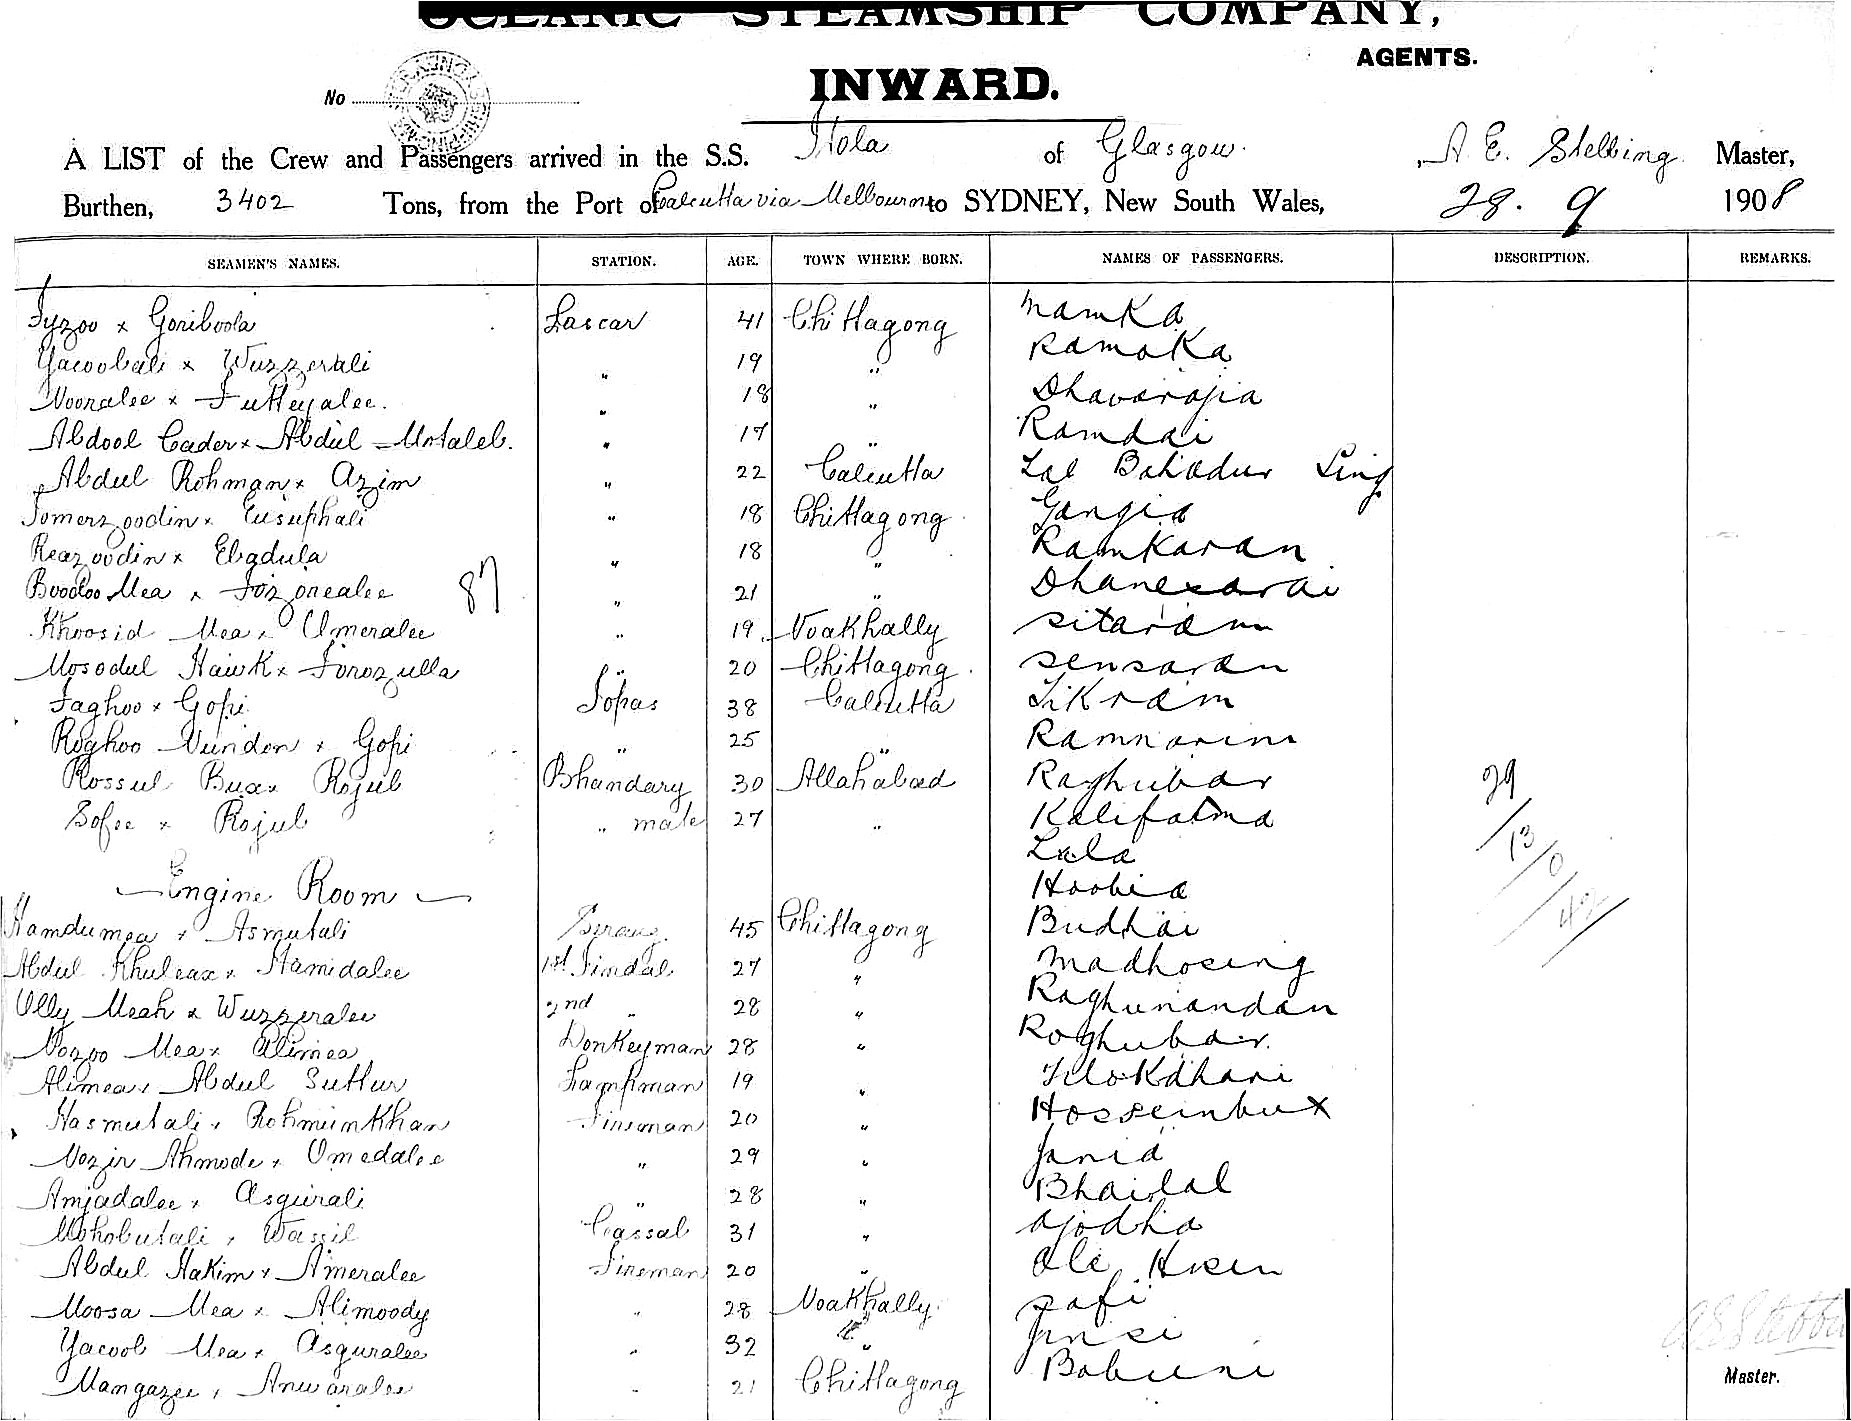 OCEANIC STEAMSHIP COMPANY,
AGENTS.
INWARD.
No
A LIST of the Crew and Passengers arrived in the S.S. Itola of Glasgow. A. E. Stebbing Master,
Burthen, 3402 Tons, from the Port of Calcutta via Melbourne to SYDNEY, New South Wales, 28. 9 1908
SEAMEN'S NAMES. STATION. AGE. TOWN WHERE BORN. NAMES OF PASSENGERS. DESCRIPTION. REMARKS.
Fyzoo x Goriboola Lascar 41 Chittagong Mamka
Yacoobali x Wuzzerali " 19 " Ramoka
Noonalee x Futteyalee. " 18 "
Abdool Cader x Abdul Motaleb. " 17 " Ramdai
Abdul Rohman x Azim " 22 Calcutta Lal Bahadur Sing
Tomerzoodin x Eusuphali " 18 Chittagong Gangia
Reazoodin x Ebadula " 18 " Ramkaran
Boodoo Mea x Fozonealee " 21 "
87
Khoosid Mea x Omeralee " 19 Noakhally Sitaram
Mosodul Hawk x Forozulla " 20 Chittagong Sensaran
Jaghoo x Gopi Topas 38 Calcutta Tikram
Roghoo Nundon x Gopi " 25 " Ramnarine
Rossul Bux x Rojub Bhandary 30 Allahabad Raghubar
29
Sofee x Rojub " mate 27 " Kalifatma
13
Lala
0
Engine Room Hoobia
42
Hamdumea x Asmutali 45 Chittagong Budhai
Abdul x Hamidalee 1st Tindal 27 " Madhosing
Olly Meah x Wuzzeralee 2nd " 28 " Raghunandan
Nozoo Mea x Alimea Donkeyman 28 " Roghubar
Alimea x Abdul Suttur Lampman 19 " Tilokdhari
Hasmutali x Rohmunkhan Fireman 20 " Hosseinbux
Nozir Ahmode x Omedalee " 29 " Jania
Amjadalee x Asgurali " 28 " Bhailal
Mohobutali x Wassil Cassab 31 " Ajodhia
Abdul Hakim x Ameralee Fireman 20 " Ali Hosen
Moosa Mea x Alimoody " 28 Noakhally Safi
Yacoob Mea x Asguralee " 32 " Jinsi
Mangazee x Anwaralee " 21 Chittagong Babuni
Master.